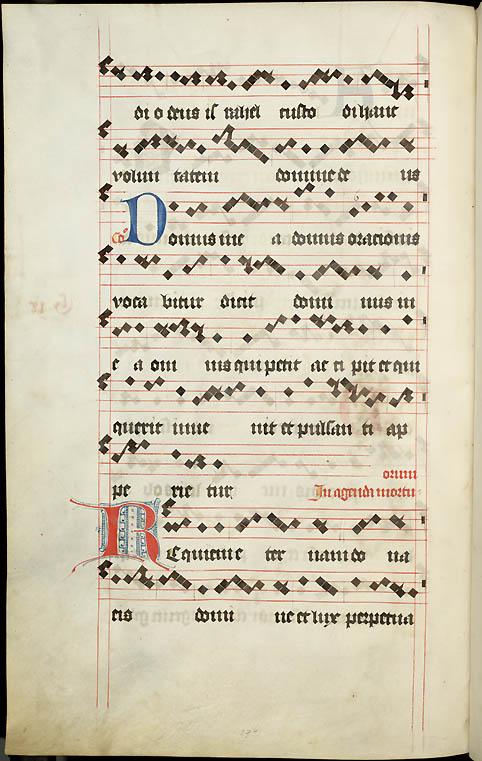 di o deus is rahel custo di hanc
volun tatem domine de us
Co Domus me a domus oracionis
voca bitur dicit domi nus in
e a om nis qui petit ac ci pit et qui
querit inue nit et pulsan ti ap
pe rie tur In agenda mortu-
orum
REquiem e ter nam do na
eis domi ne et lux perpetua